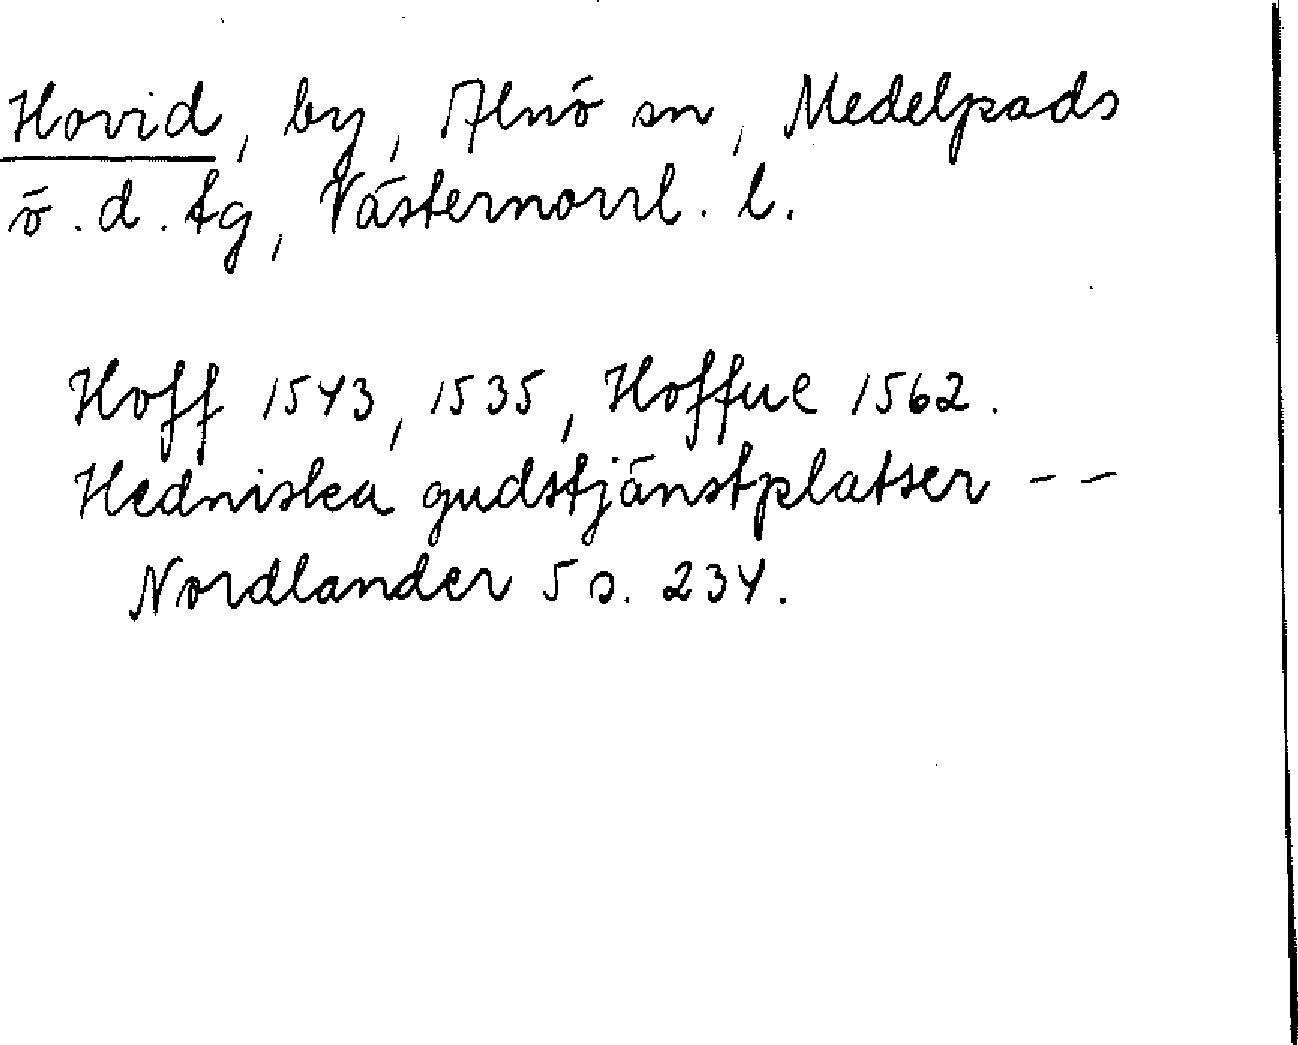 Hovid, by, Alnö sn, Medelpads
ö. d. tg, Västernorrl. l.
Hoff 1543, 1535, Hoffue 1562.
Hedniska gudstjänstplatser - -
Nordlander 5 s. 234.